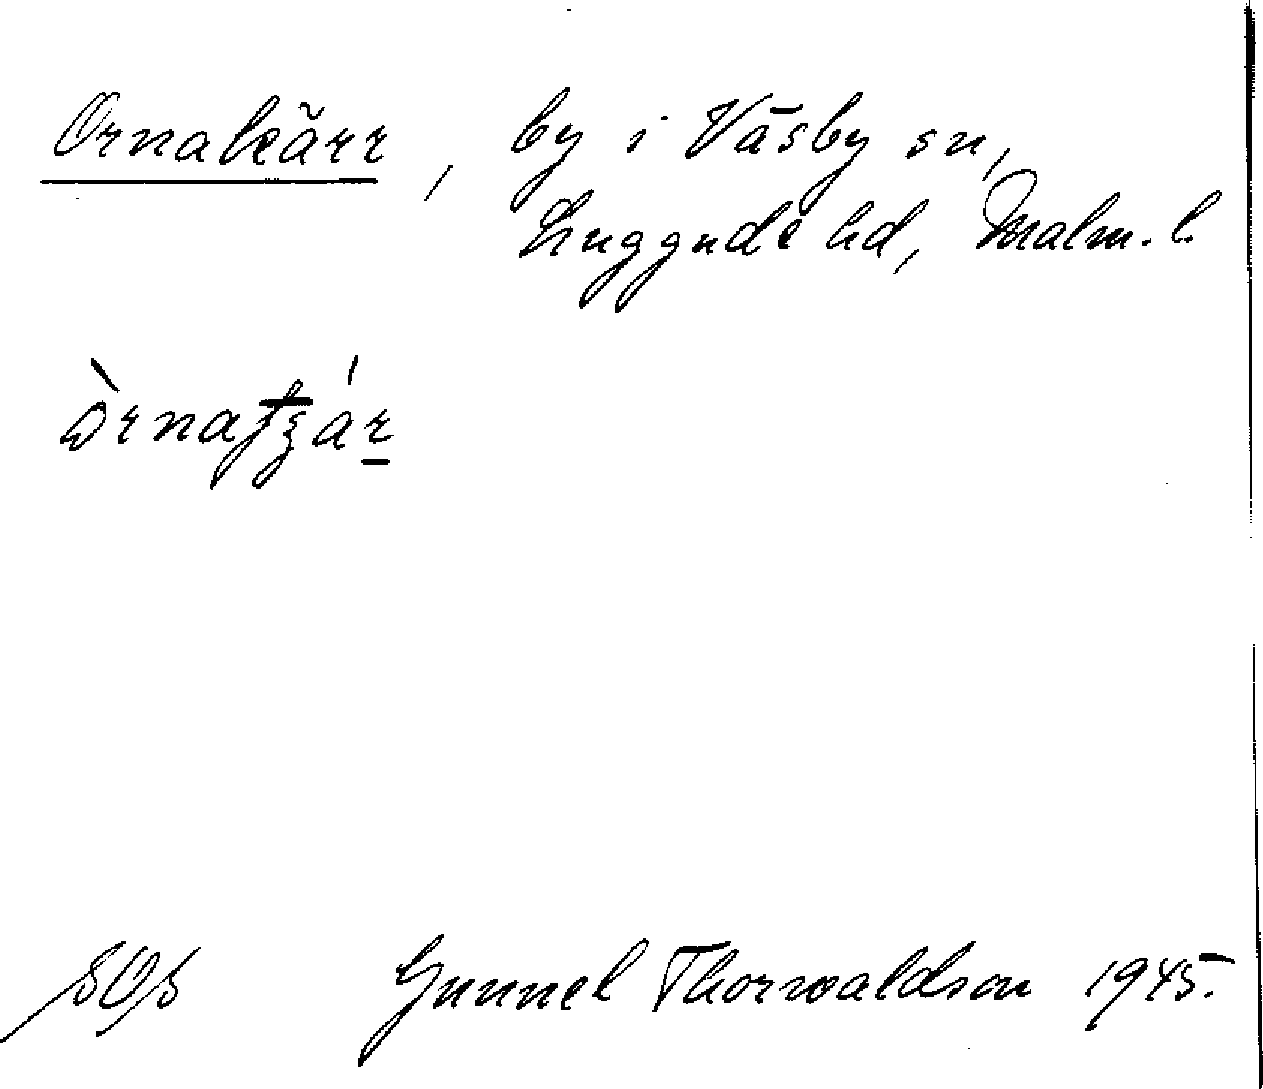 Ornakärr, by i Väsby sn,
Luggude hd, Malm. l.
Gunnel Thorwaldson 1945.